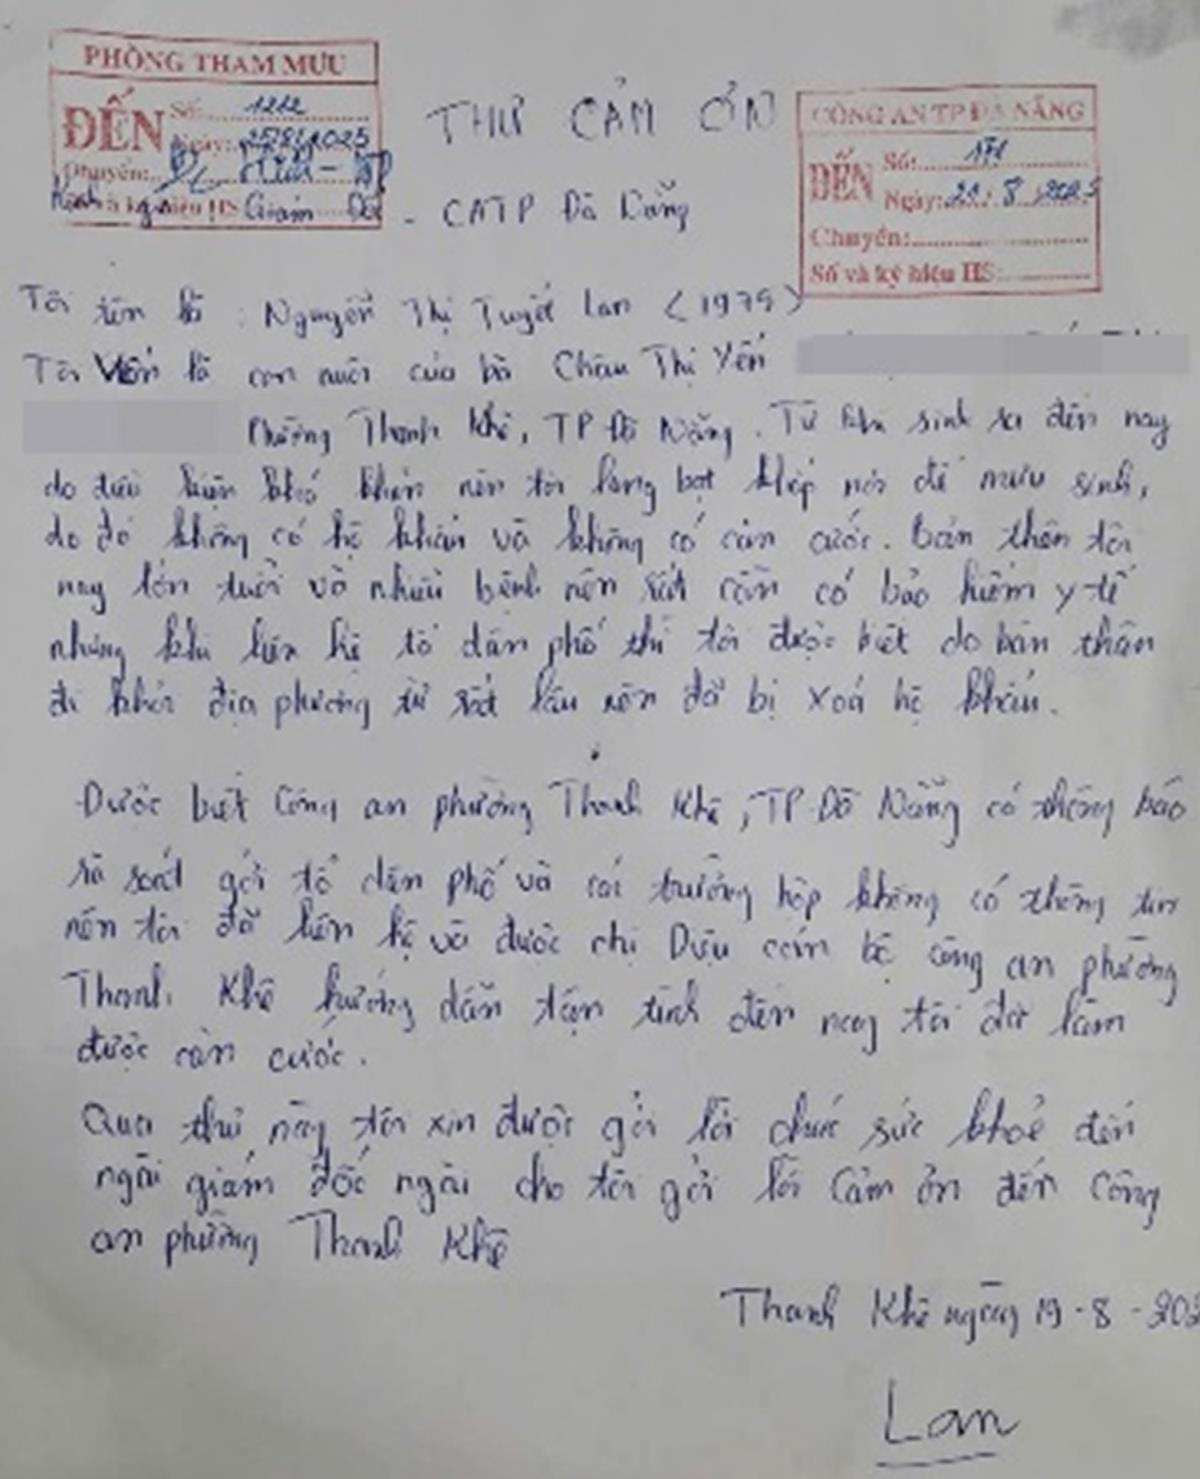 PHÒNG THAM MƯU
ĐẾN
Số: 1212
Ngày: 25/8/2025
Chuyển:
THƯ CẢM ƠN
CÔNG AN TP ĐÀ NẴNG
ĐẾN
Số: 171
Ngày: 21.8.2025
Chuyển:
Số và ký hiệu HS:
Kính gửi Giám Đốc - CATP Đà Nẵng
Tôi tên là : Nguyễn Thị Tuyết Lan (1979)
Tôi Vốn là con nuôi của bà Châu Thị Yến
Phường Thanh Khê, TP Đà Nẵng. Từ khi sinh ra đến nay
do điều kiện khó khăn nên tôi lang bạt khắp nơi để mưu sinh,
do đó không có hộ khẩu và không có căn cước. Bản thân tôi
nay lớn tuổi và nhiều bệnh nên rất cần có bảo hiểm y tế
nhưng khi liên hệ tổ dân phố thì tôi được biết do bản thân
đi khỏi địa phương từ rất lâu nên đã bị xoá hộ khẩu.
Được biết Công an phường Thanh Khê, TP Đà Nẵng có thông báo
rà soát gởi tổ dân phố và các trường hợp không có thông tin
nên tôi đã liên hệ và được chị Diệu cán bộ công an phường
Thanh Khê hướng dẫn tận tình đến nay tôi đã làm
được căn cước.
Qua thư này tôi xin được gởi lời chúc sức khoẻ đến
ngài giám đốc ngài cho tôi gởi lời cảm ơn đến Công
an phường Thanh Khê
Thanh Khê ngày 19-8-202
Lan